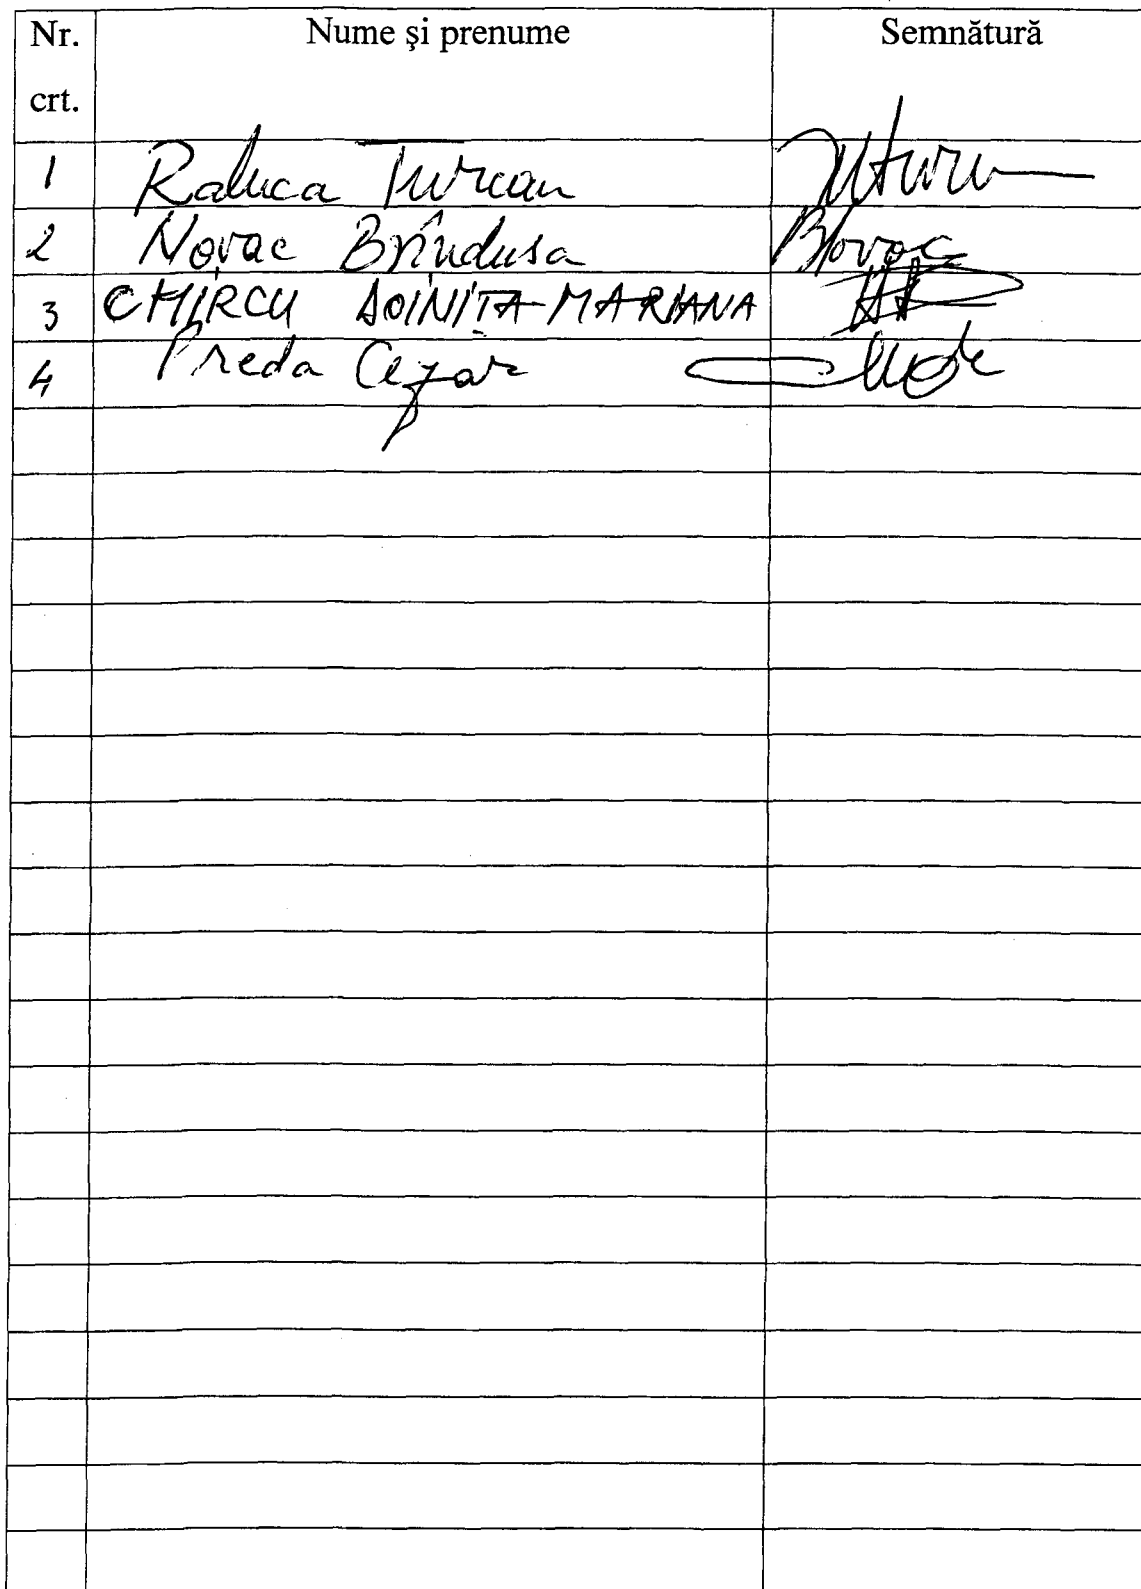 Nr. crt. Nume şi prenume Semnătură
1 Raluca Turcan
2 Novac Brîndusa BNovac
3 CHIRCU DOINITA-MARIANA
4 Preda Cezar